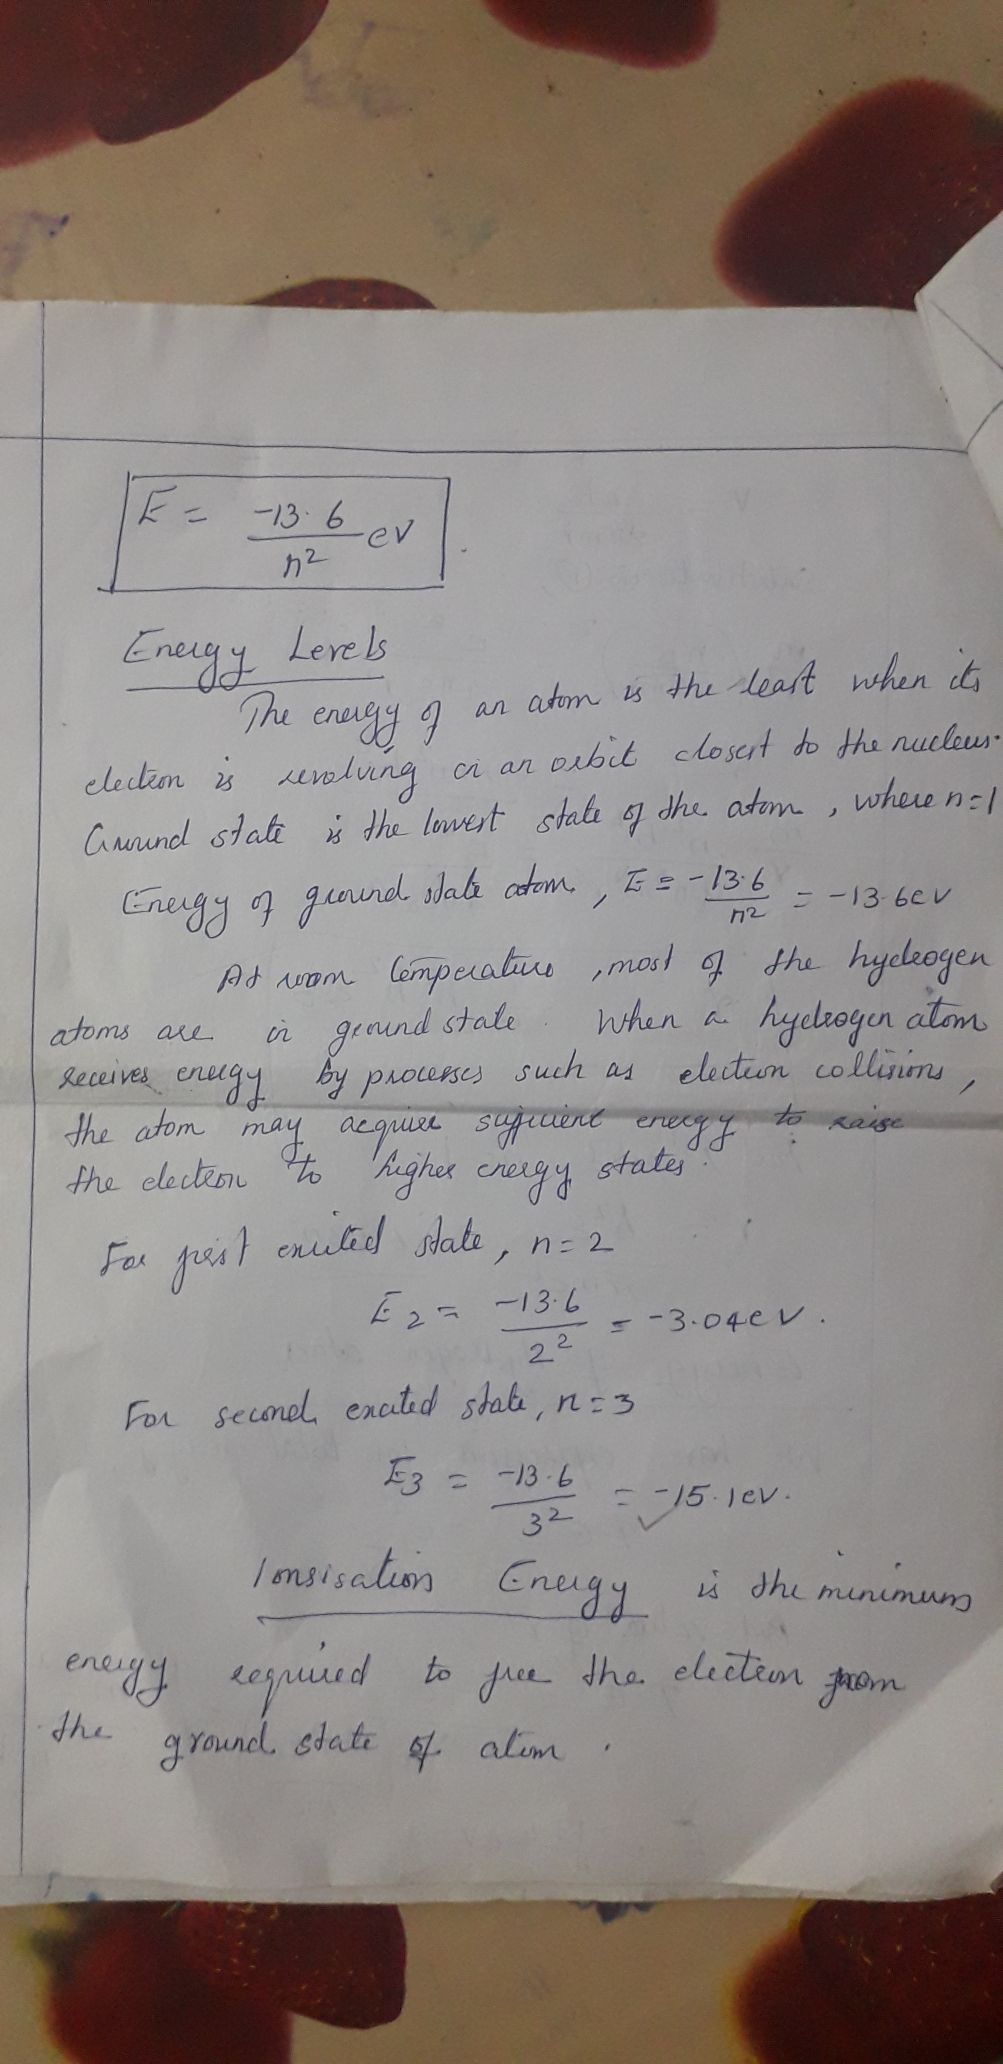 E = -13.6/n² eV
Energy Levels
The energy of an atom is the least when its
electron is revolving in an orbit closest to the nucleus.
Ground state is the lowest state of the atom, where n=1
Energy of ground state atom, E = -13.6/n² = -13.6eV
At room temperature, most of the hydrogen
atoms are in ground state. When a hydrogen atom
receives energy by processes such as electron collisions,
the atom may acquire sufficient energy to raise
the electron to higher energy states.
For first excited state, n=2
E2 = -13.6/2² = -3.04eV.
For second excited state, n=3
E3 = -13.6/3² = -15.1eV.
Ionsisation Energy is the minimum
energy required to free the electron from
the ground state of atom.